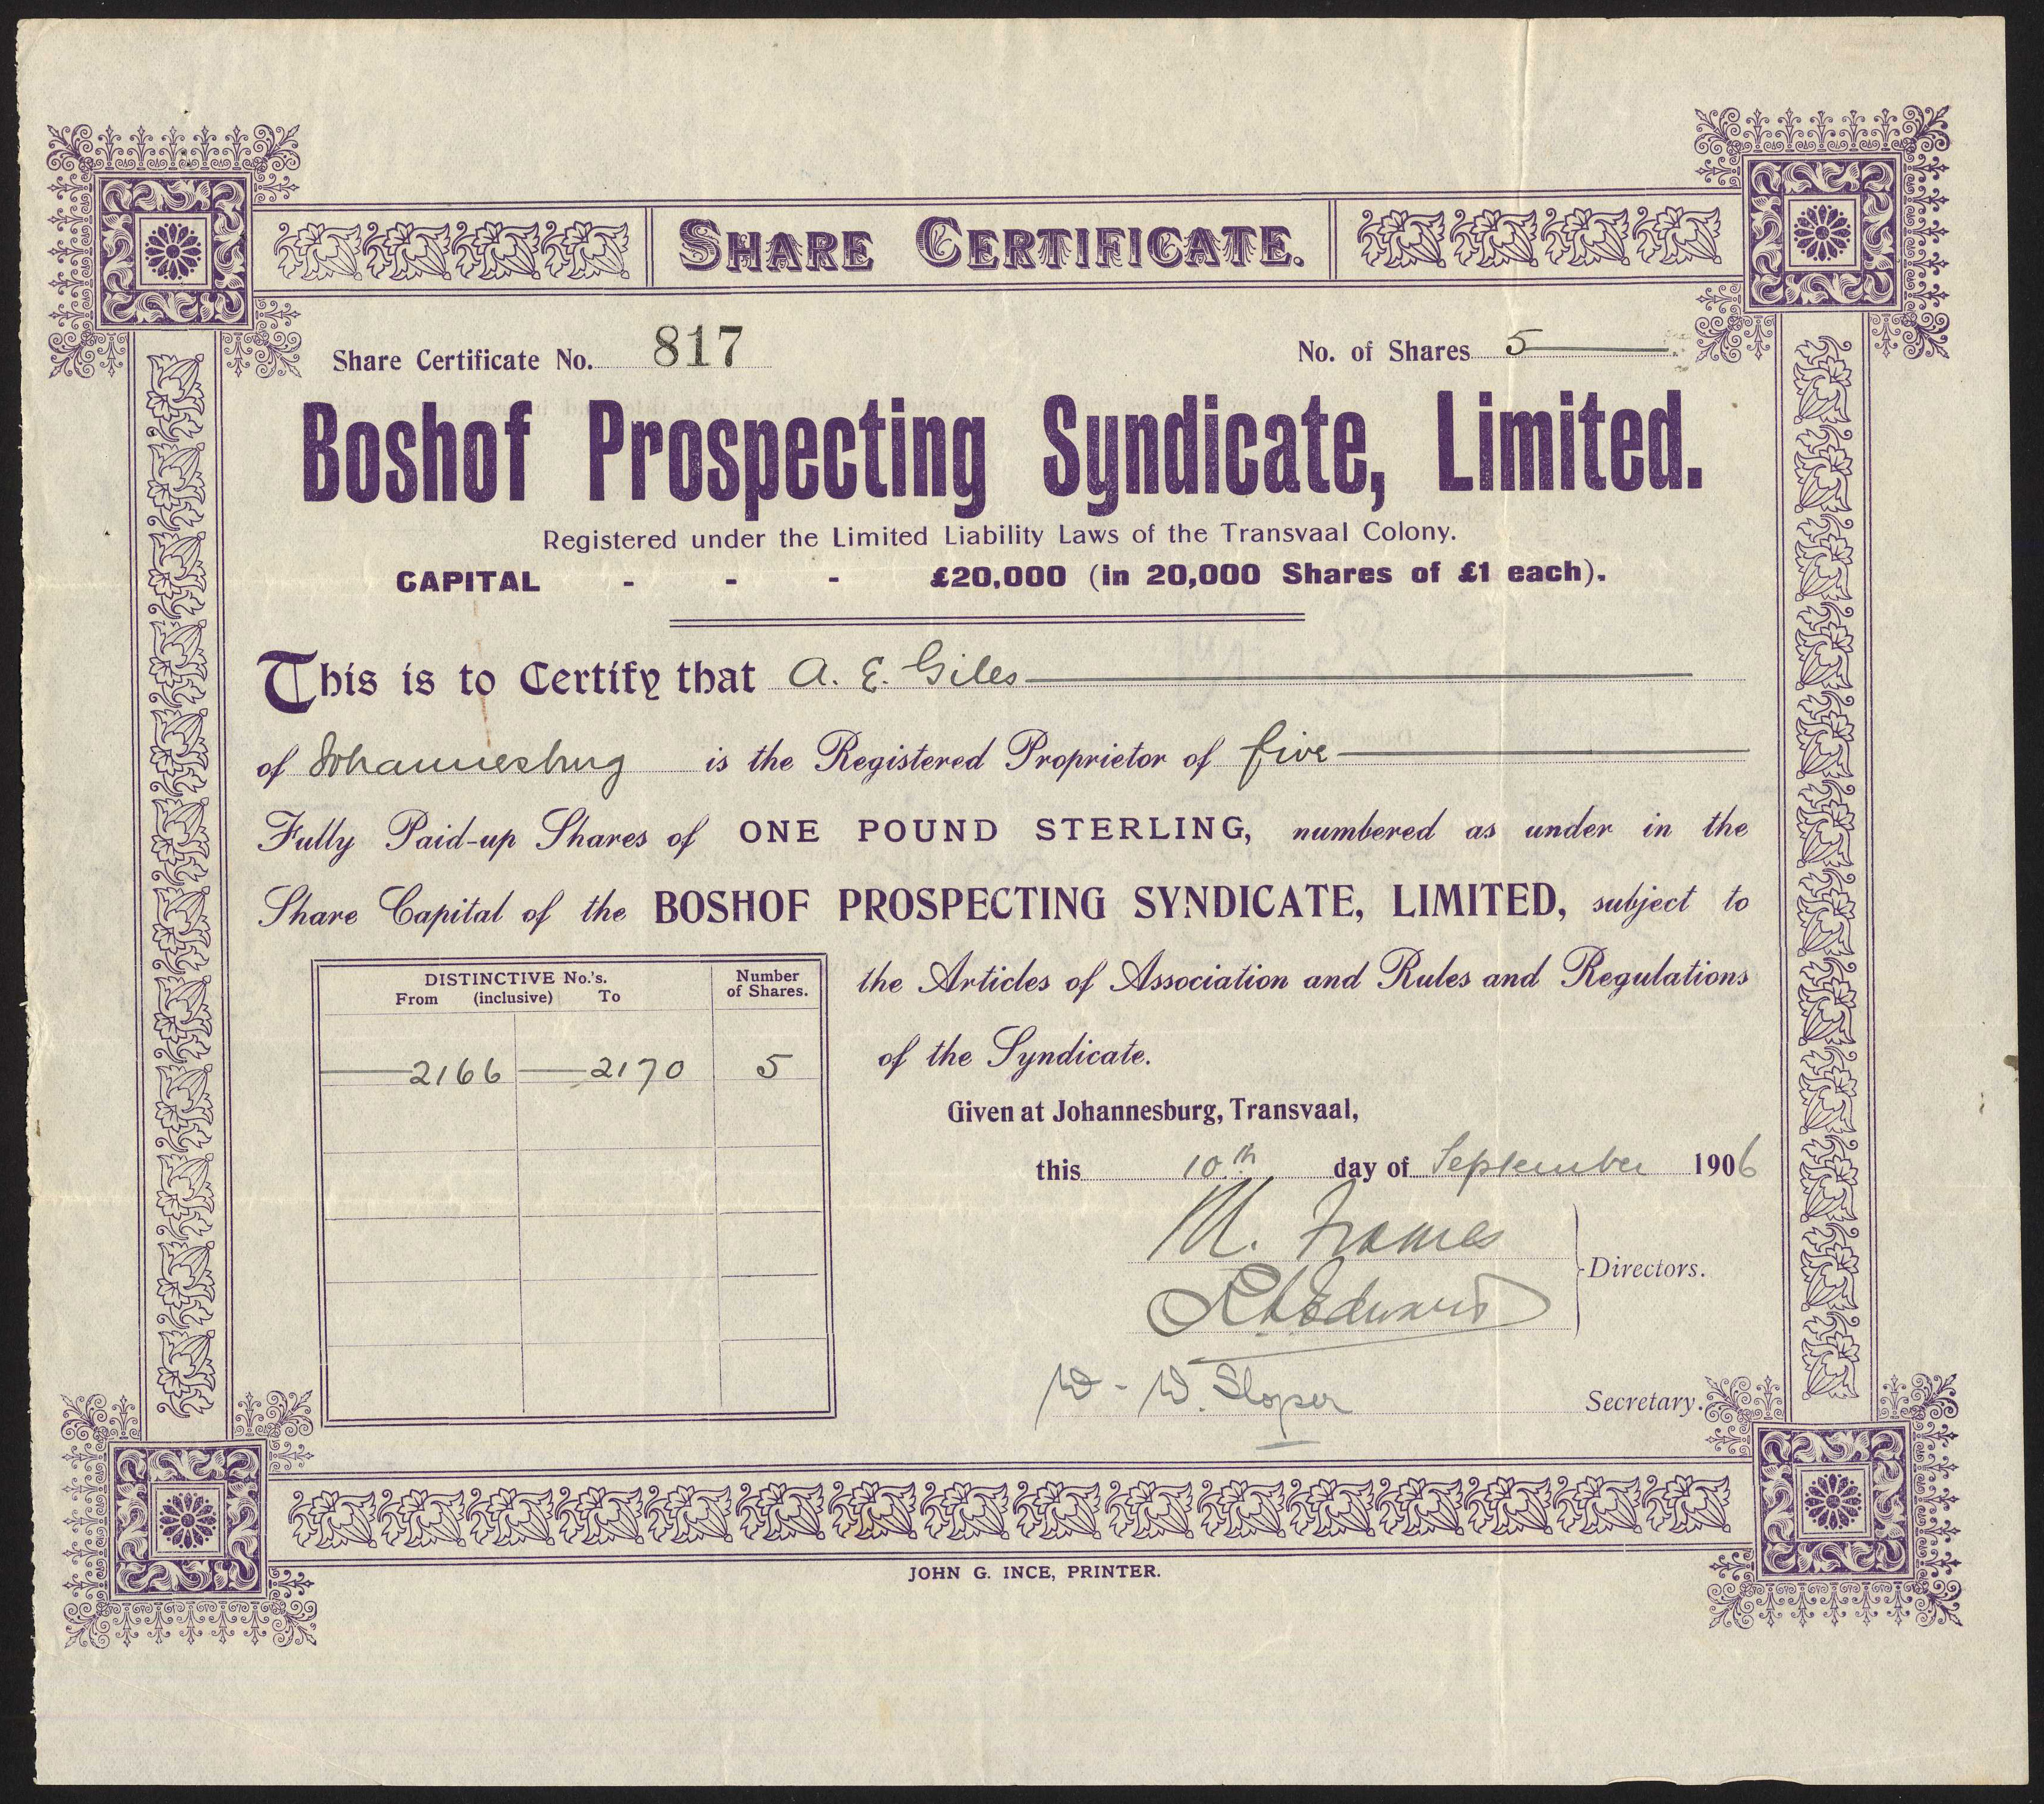 SHARE CERTIFICATE.
Share Certificate No. 817 No. of Shares 5
Boshof Prospecting Syndicate, Limited.
Registered under the Limited Liability Laws of the Transvaal Colony.
CAPITAL - - - £20,000 (in 20,000 Shares of £1 each).
This is to Certify that A. E. Giles
of Johannesburg is the Registered Proprietor of five
Fully Paid-up Shares of ONE POUND STERLING, numbered as under in the
Share Capital of the BOSHOF PROSPECTING SYNDICATE, LIMITED, subject to
the Articles of Association and Rules and Regulations
of the Syndicate.
DISTINCTIVE No.'s. Number
From (inclusive) To of Shares.
2166 2170 5
Given at Johannesburg, Transvaal,
this 10th day of September 1906
M. Frames
Directors.
W. W. Sloper Secretary.
JOHN G. INCE, PRINTER.